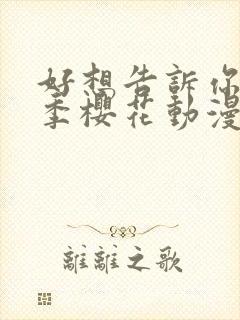 好想告訴你
季櫻花動漫
離離之歌